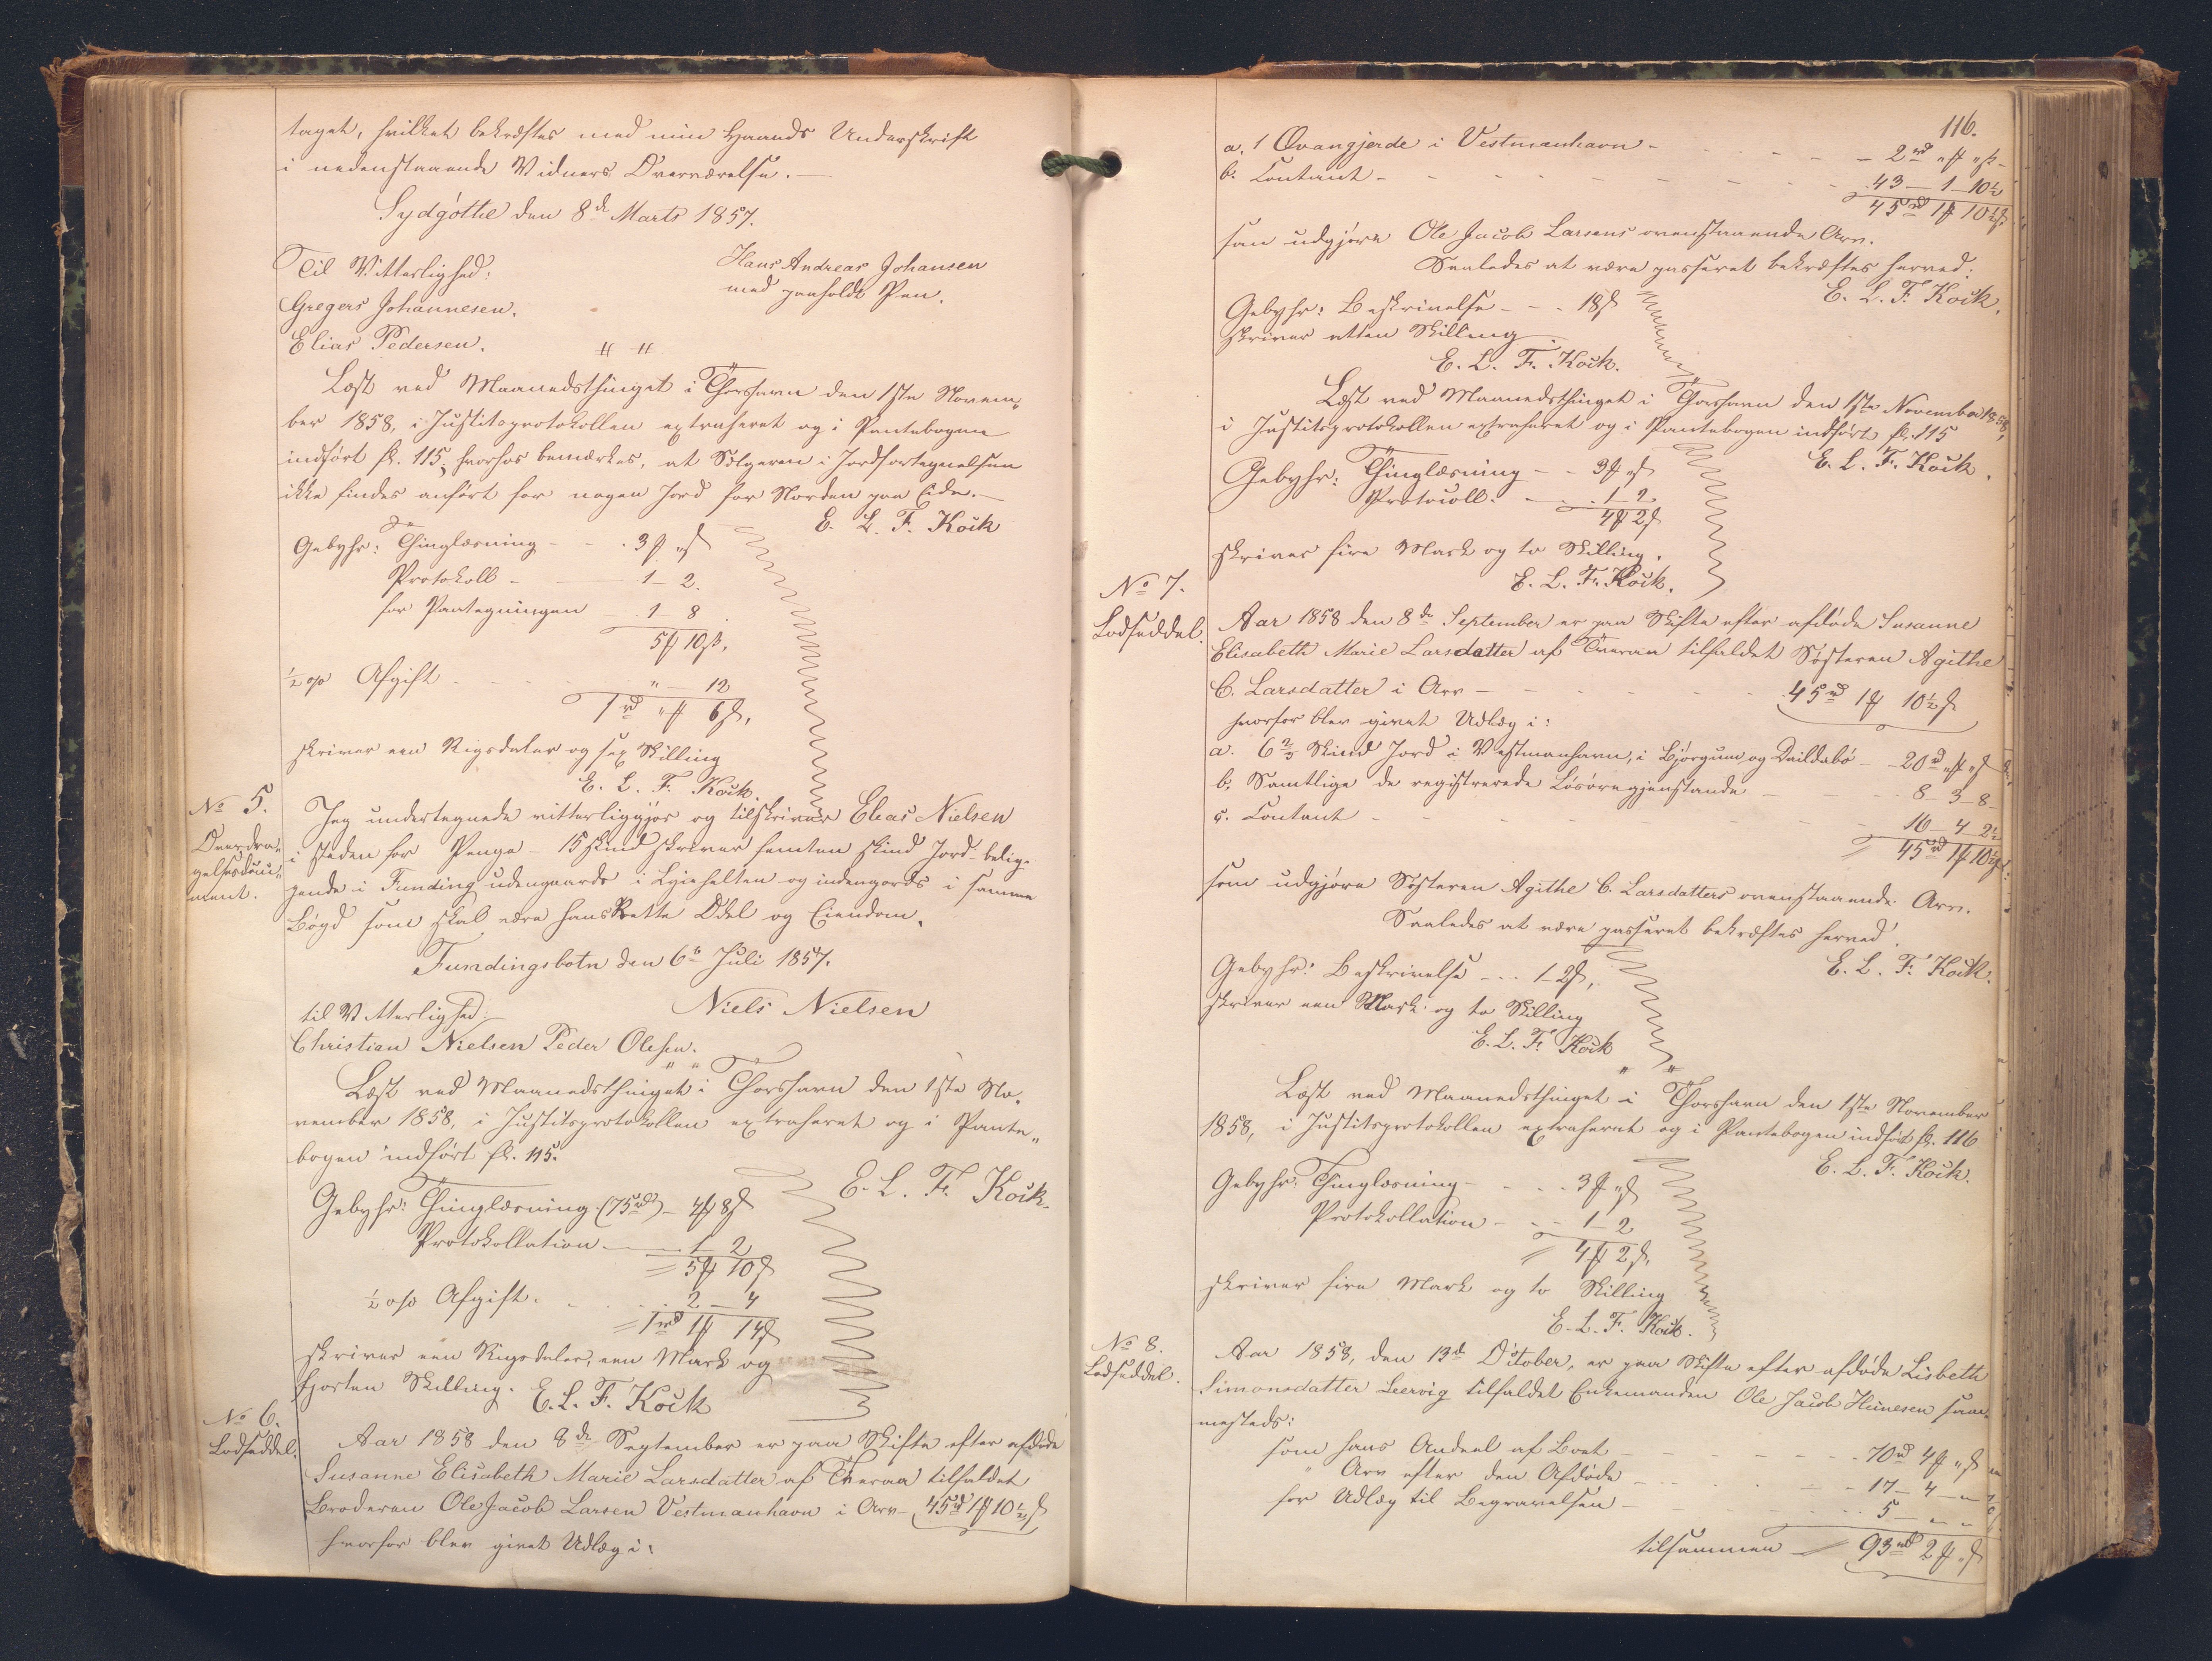 taget, hvilket bekræftes med min Haands Underskrift
i nedenstaaende Vidners Overværelse. —
Sydgøthe den 8de Marts 1857.
Til Vitterlighed:
Hans Andreas Johansen
med paaholdt Pen.
Gregers Johannesen.
Elias Pedersen.
Læst ved Maanedsthinget i Thorshavn den 1ste Novem„
ber 1858, i Justitsprotokollen extraheret og i Pantebogen
indført fl. 115, hvorhos bemærkes, at Sælgeren i Jordfortegnelsen
ikke findes anført for nogen Jord for Norden paa Eide. —
E. L. F. Kock
Gebyhr: Thinglæsning - - 3 ℳ „ β
Protokoll - — 1 - 2.
for Paategningen — 1 - 8
5 ℳ 10 β.
½ o/o Afgift - - - „ — 12
1 rd „ ℳ 6 β.
skriver een Rigsdaler og sex Skilling
E. L. F. Kock.
No 5.
Overdra„
gelsesdocu„
ment.
Jeg undertegnede vitterliggjør og tilskriver Elias Nielsen
i steden for Penge - 15 skind skriver femten skind Jord - belig-
gende i Funding udengaards i Lyiehelten og indengards i samme
Bøgd som skal være hans Rette Odel og Eiendom.
Fundingsbotn den 6te Juli 1857.
til Vitterlighed:
Niels Nielsen
Christian Nielsen Peder Olesen.
Læst ved Maanedsthinget i Thorshavn den 1ste No„
vember 1858, i Justitsprotokollen extraheret og i Pante„
bogen indført fl. 115.
E. L. F. Kock.
Gebyhr: Thinglæsning (75 rd) - 4 ℳ 8 β
Protokollation — 1 - 2
= 5 ℳ 10 β
½ o/o Afgift. - - 2 — 4
= 1 rd 1 ℳ 14 β
skriver een Rigsdaler, een Mark og
fjorten Skilling. E. L. F. Kock
No 6.
Lodseddel.
Aar 1858 den 8de September er paa Skifte efter afdøde
Susanne Elisabeth Marie Larsdatter af Tveraa tilfaldet
Broderen Ole Jacob Larsen Vestmanhavn i Arv - 45 rd 1 ℳ 10½ β
hvorfor blev givet Udlæg i:
116.
a. 1 Qvangjerde i Vestmanhavn - - - - 2 rd „ ℳ „ β -
b. Contant - - - - - 43 — 1 - 10½
45 rd 1 ℳ 10½ β
som udgjøre Ole Jacob Larsens ovenstaaende Arv.
Saaledes at være passeret bekræftes herved:
E. L. F. Kock.
Gebyhr: Beskrivelse - - - 18 β
skriver atten Skilling
E. L. F. Kock.
Læst ved Maanedsthinget i Thorshavn den 1ste November 1858,
i Justitsprotokollen extraheret og i Pantebogen indført fl. 115
E. L. F. Kock.
Gebyhr: Thinglæsning - - 3 ℳ „ β
Protocoll. - — 1 - 2
4 ℳ 2 β
skriver fire Mark og to Skilling.
E. L. F. Kock.
No 7.
Lodseddel.
Aar 1858 den 8de September er paa Skifte efter afdøde Susanne
Elisabeth Marie Larsdatter af Tveraa tilfaldet Søsteren Agithe
C. Larsdatter i Arv - - - - 45 rd 1 ℳ 10½ β
hvorfor blev givet Udlæg i:
a. 6⅔ Skind Jord i Vestmanhavn, i Bjørgum og Daildabø - - 20 rd „ ℳ „ β
b. Samtlige de registrerede Løsøregjenstande - - - 8 - 3 - 8 -
c. Contant - - - - 16 - 4 - 2½
= 45 rd 1 ℳ 10½ β.
som udgjøre Søsteren Agithe C. Larsdatters ovenstaaende Arv.
Saaledes at være passeret bekræftes herved.
E. L. F. Kock.
Gebyhr: Beskrivelse - - - 1 - 2 β.
skriver een Mark og to Skilling
E. L. F. Kock
Læst ved Maanedsthinget i Thorshavn den 1ste November
1858, i Justitsprotokollen extraheret og i Pantebogen indført fl. 116
E. L. F. Kock.
Gebyhr: Thinglæsning - - - 3 ℳ „ β
Protokollation - - - 1 - 2
= 4 ℳ 2 β.
skriver fire Mark og to Skilling
E. L. F. Kock.
No 8.
Lodseddel.
Aar 1858, den 13de October, er paa Skifte efter afdøde Lisbeth
Simonsdatter Leervig tilfaldet Enkemanden Ole Jacob Heinesen sam„
mesteds:
som hans Andeel af Boet - - - - 70 rd 4 ℳ „ β
„ Arv efter den Afdøde - - - - 17 - 4 - „
for Udlæg til Begravelsen - - - 5 - „ - „
tilsammen = 93 rd 2 ℳ „ β